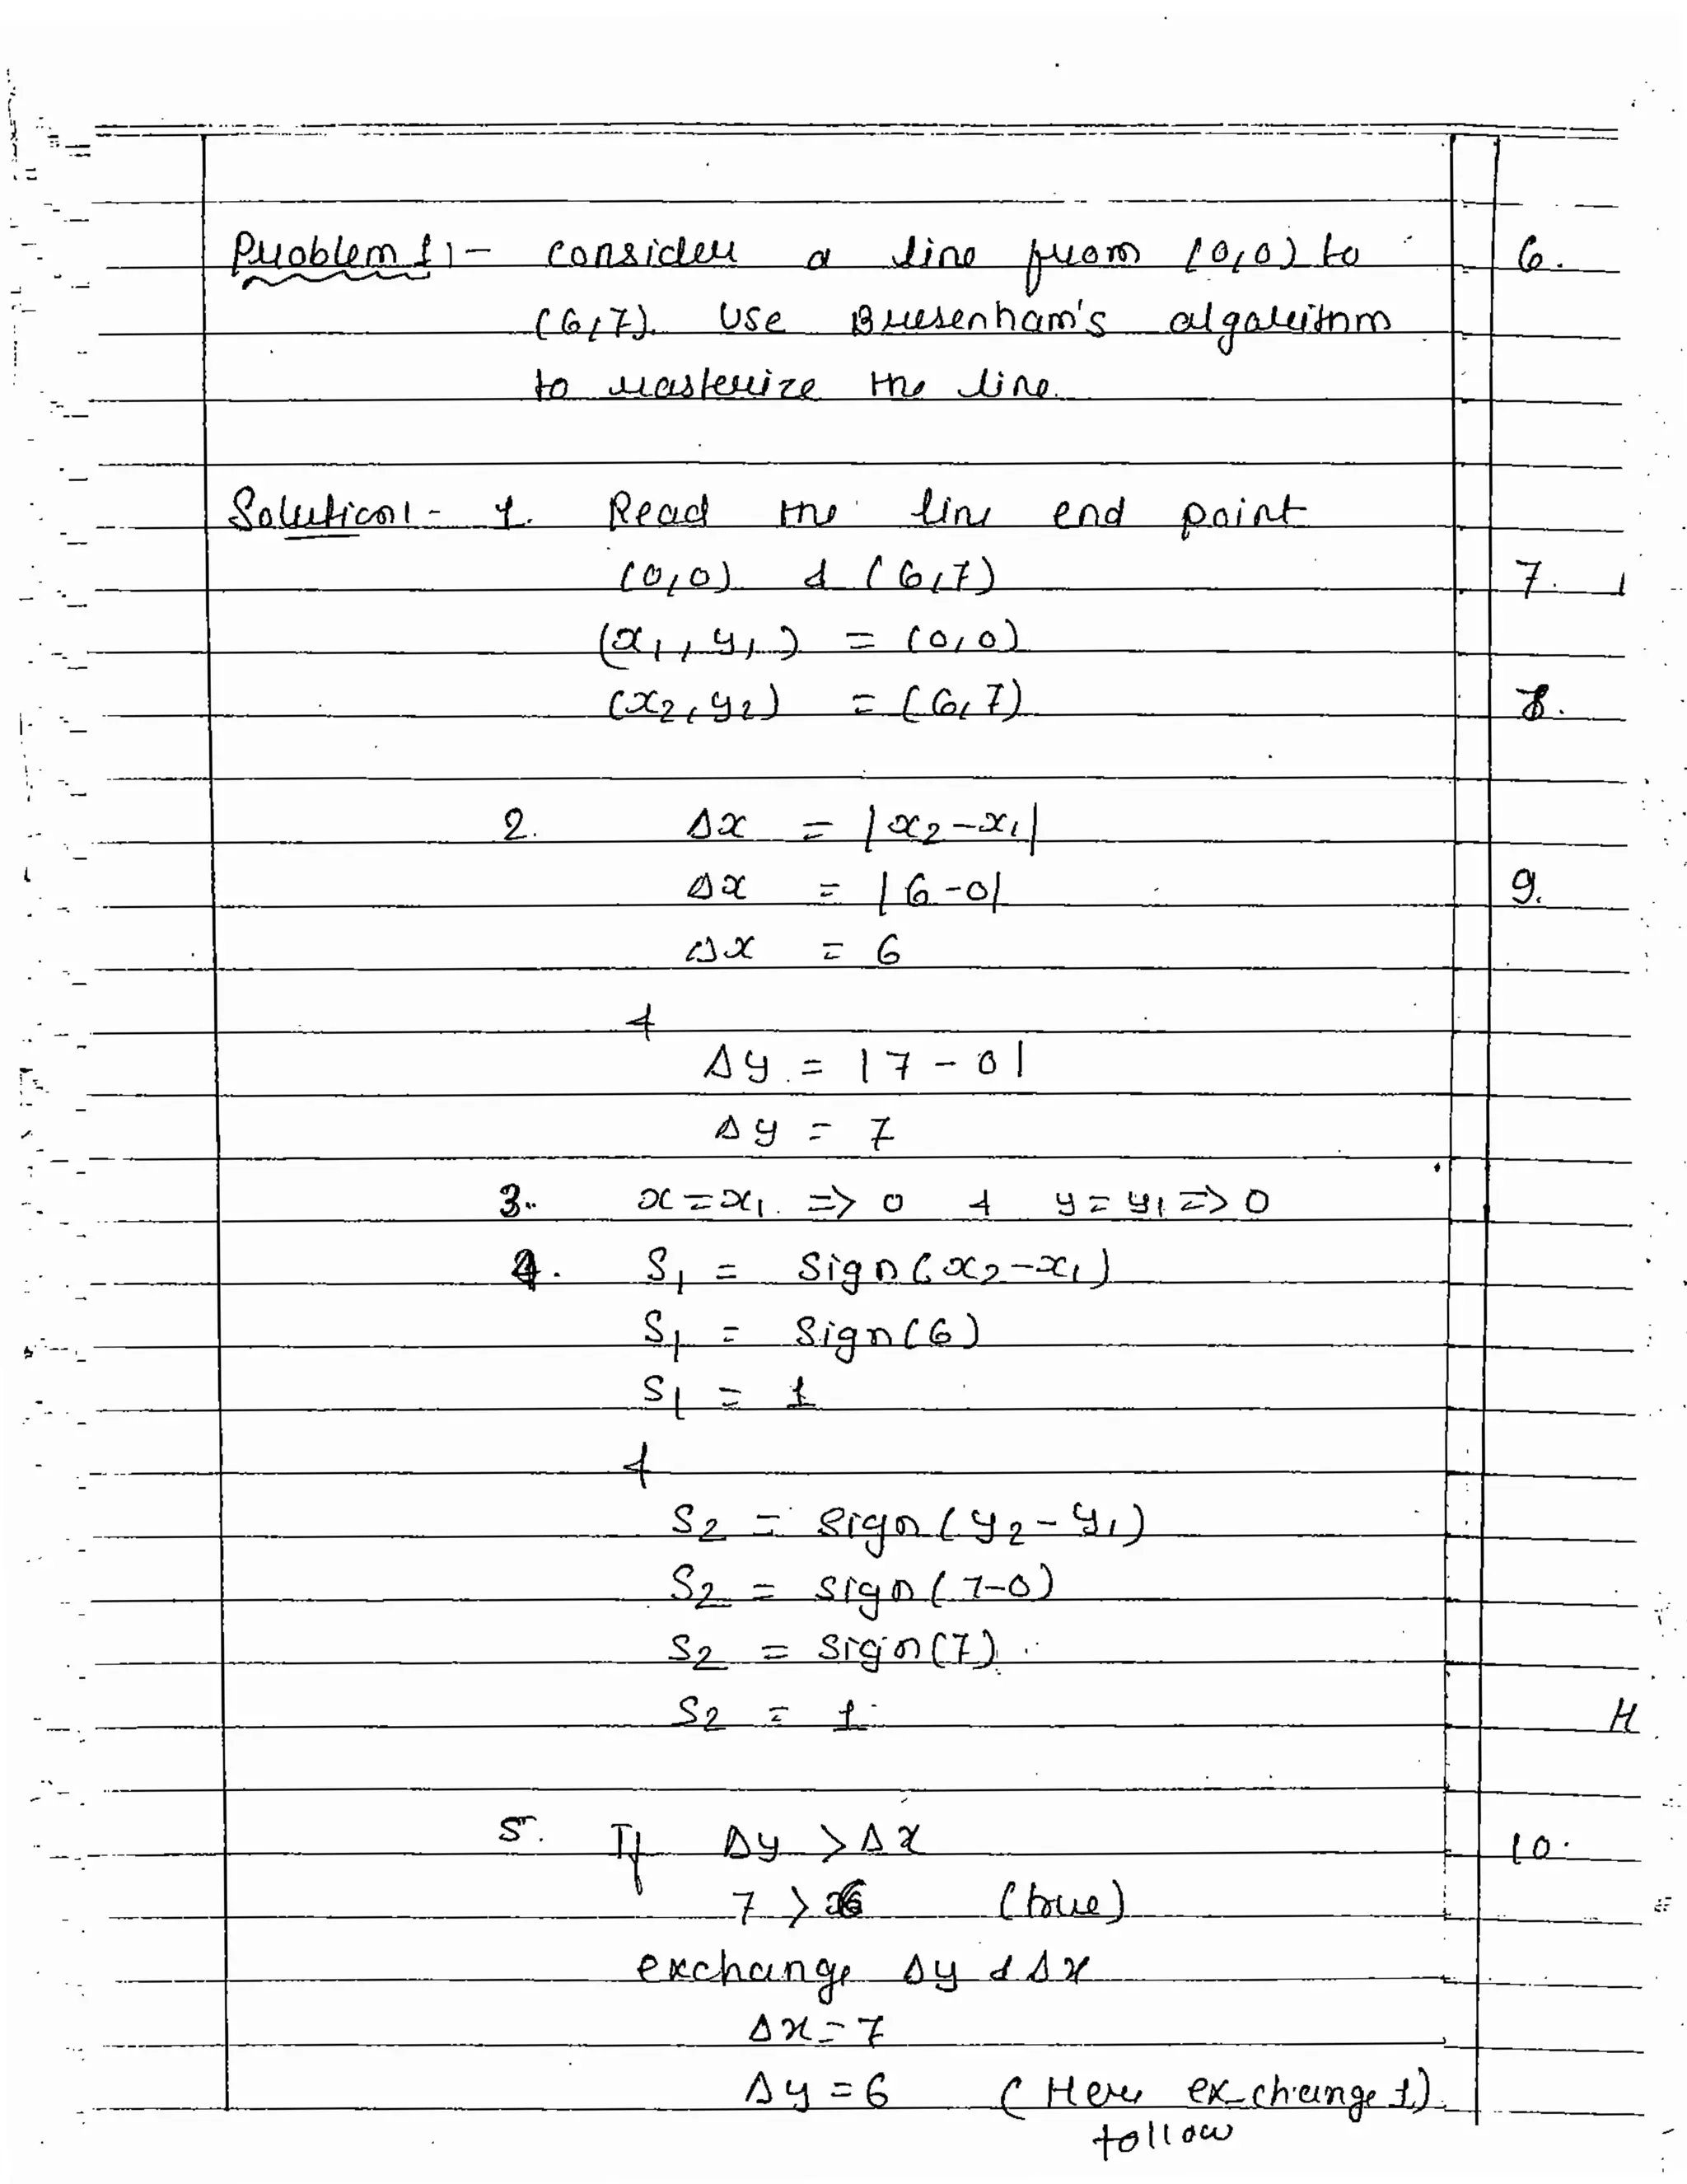 Problem 1:- consider a line from (0,0) to
(6,7). Use Bresenham's algorithm
to rasterize the line.
Solution:- 1. Read the line end point
(0,0) & (6,7)
(x1, y1) = (0,0)
(x2, y2) = (6,7)
2. Δx = |x2-x1|
Δx = |6-0|
Δx = 6
&
Δy = |7-0|
Δy = 7
3. x=x1 => 0 & y=y1 => 0
4. S1 = Sign(x2-x1)
S1 = Sign(6)
S1 = 1
&
S2 = Sign(y2-y1)
S2 = Sign(7-0)
S2 = Sign(7)
S2 = 1
5. If Δy > Δx
7 > 6 (true)
exchange Δy & Δx
Δx=7
Δy=6 (Here exchange 1)
follow
6.
7.
8.
9.
10.